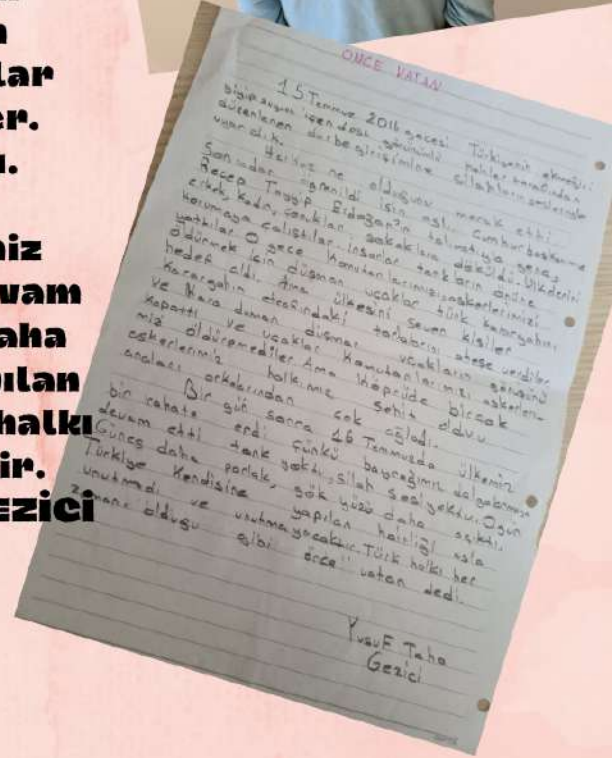 n
lar
er.
ı.
niz
vam
aha
pılan
halkı
ir.
ezici
ÖNCE VATAN
15 Temmuz 2016 gecesi Türkiyenin ekmeğini
yiyip suyunu içen dost görünümlü hainler tarafından
düzenlenen darbe girişimine silahların sesleriyle
uyandık.
Herkes ne olduğunu merak etti.
Sonradan öğrenildi işin aslı. Cumhurbaşkanımız
Recep Tayyip Erdoğan'ın talimatıyla genç,
erkek, kadın, çocuklar sokaklara döküldü. Ülkelerini
korumaya çalıştılar. İnsanlar tankların önüne
yattılar. O gece komutanlarımızı, askerlerimizi
öldürmek için düşman uçaklar türk karargahını
hedef aldı. Ama ülkesini seven kişiler
karargahın etrafındaki tarlaları ateşe verdiler
ve kara duman düşman uçakların görüşünü
kapattı ve uçaklar komutanlarımızı askerleri-
mizi öldüremediler. Ama köprüde birçok
askerlerimiz halkımız şehit oldu
anaları arkalarından çok ağladı.
Bir gün sonra 16 Temmuzda ülkemiz
bir rahata erdi çünkü bayrağımız dalgalanmaya
devam etti tank yoktu, silah sesi yoktu. O gün
Güneş daha parlak, gök yüzü daha açıktı.
Türkiye kendisine yapılan hainliği asla
unutmadı ve unutmayacaktır. Türk halkı her
zaman olduğu gibi önce vatan dedi.
Yusuf Taha
Gezici